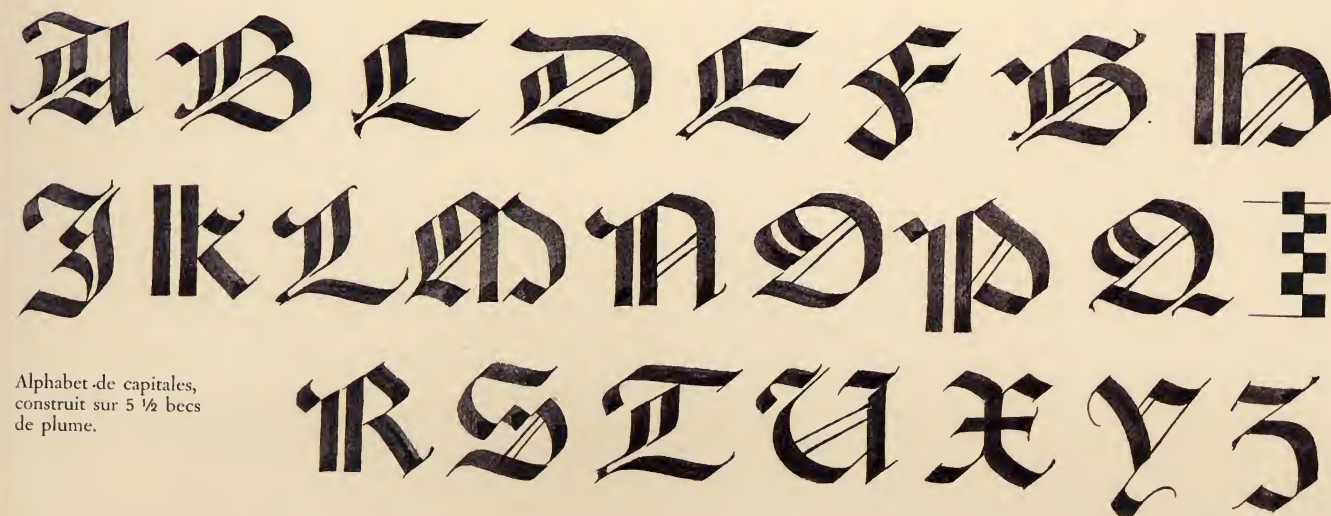 A B C D E F G H
J K L M N O P Q
Alphabet de capitales,
construit sur 5 ½ becs
de plume.
R S T U X Y Z